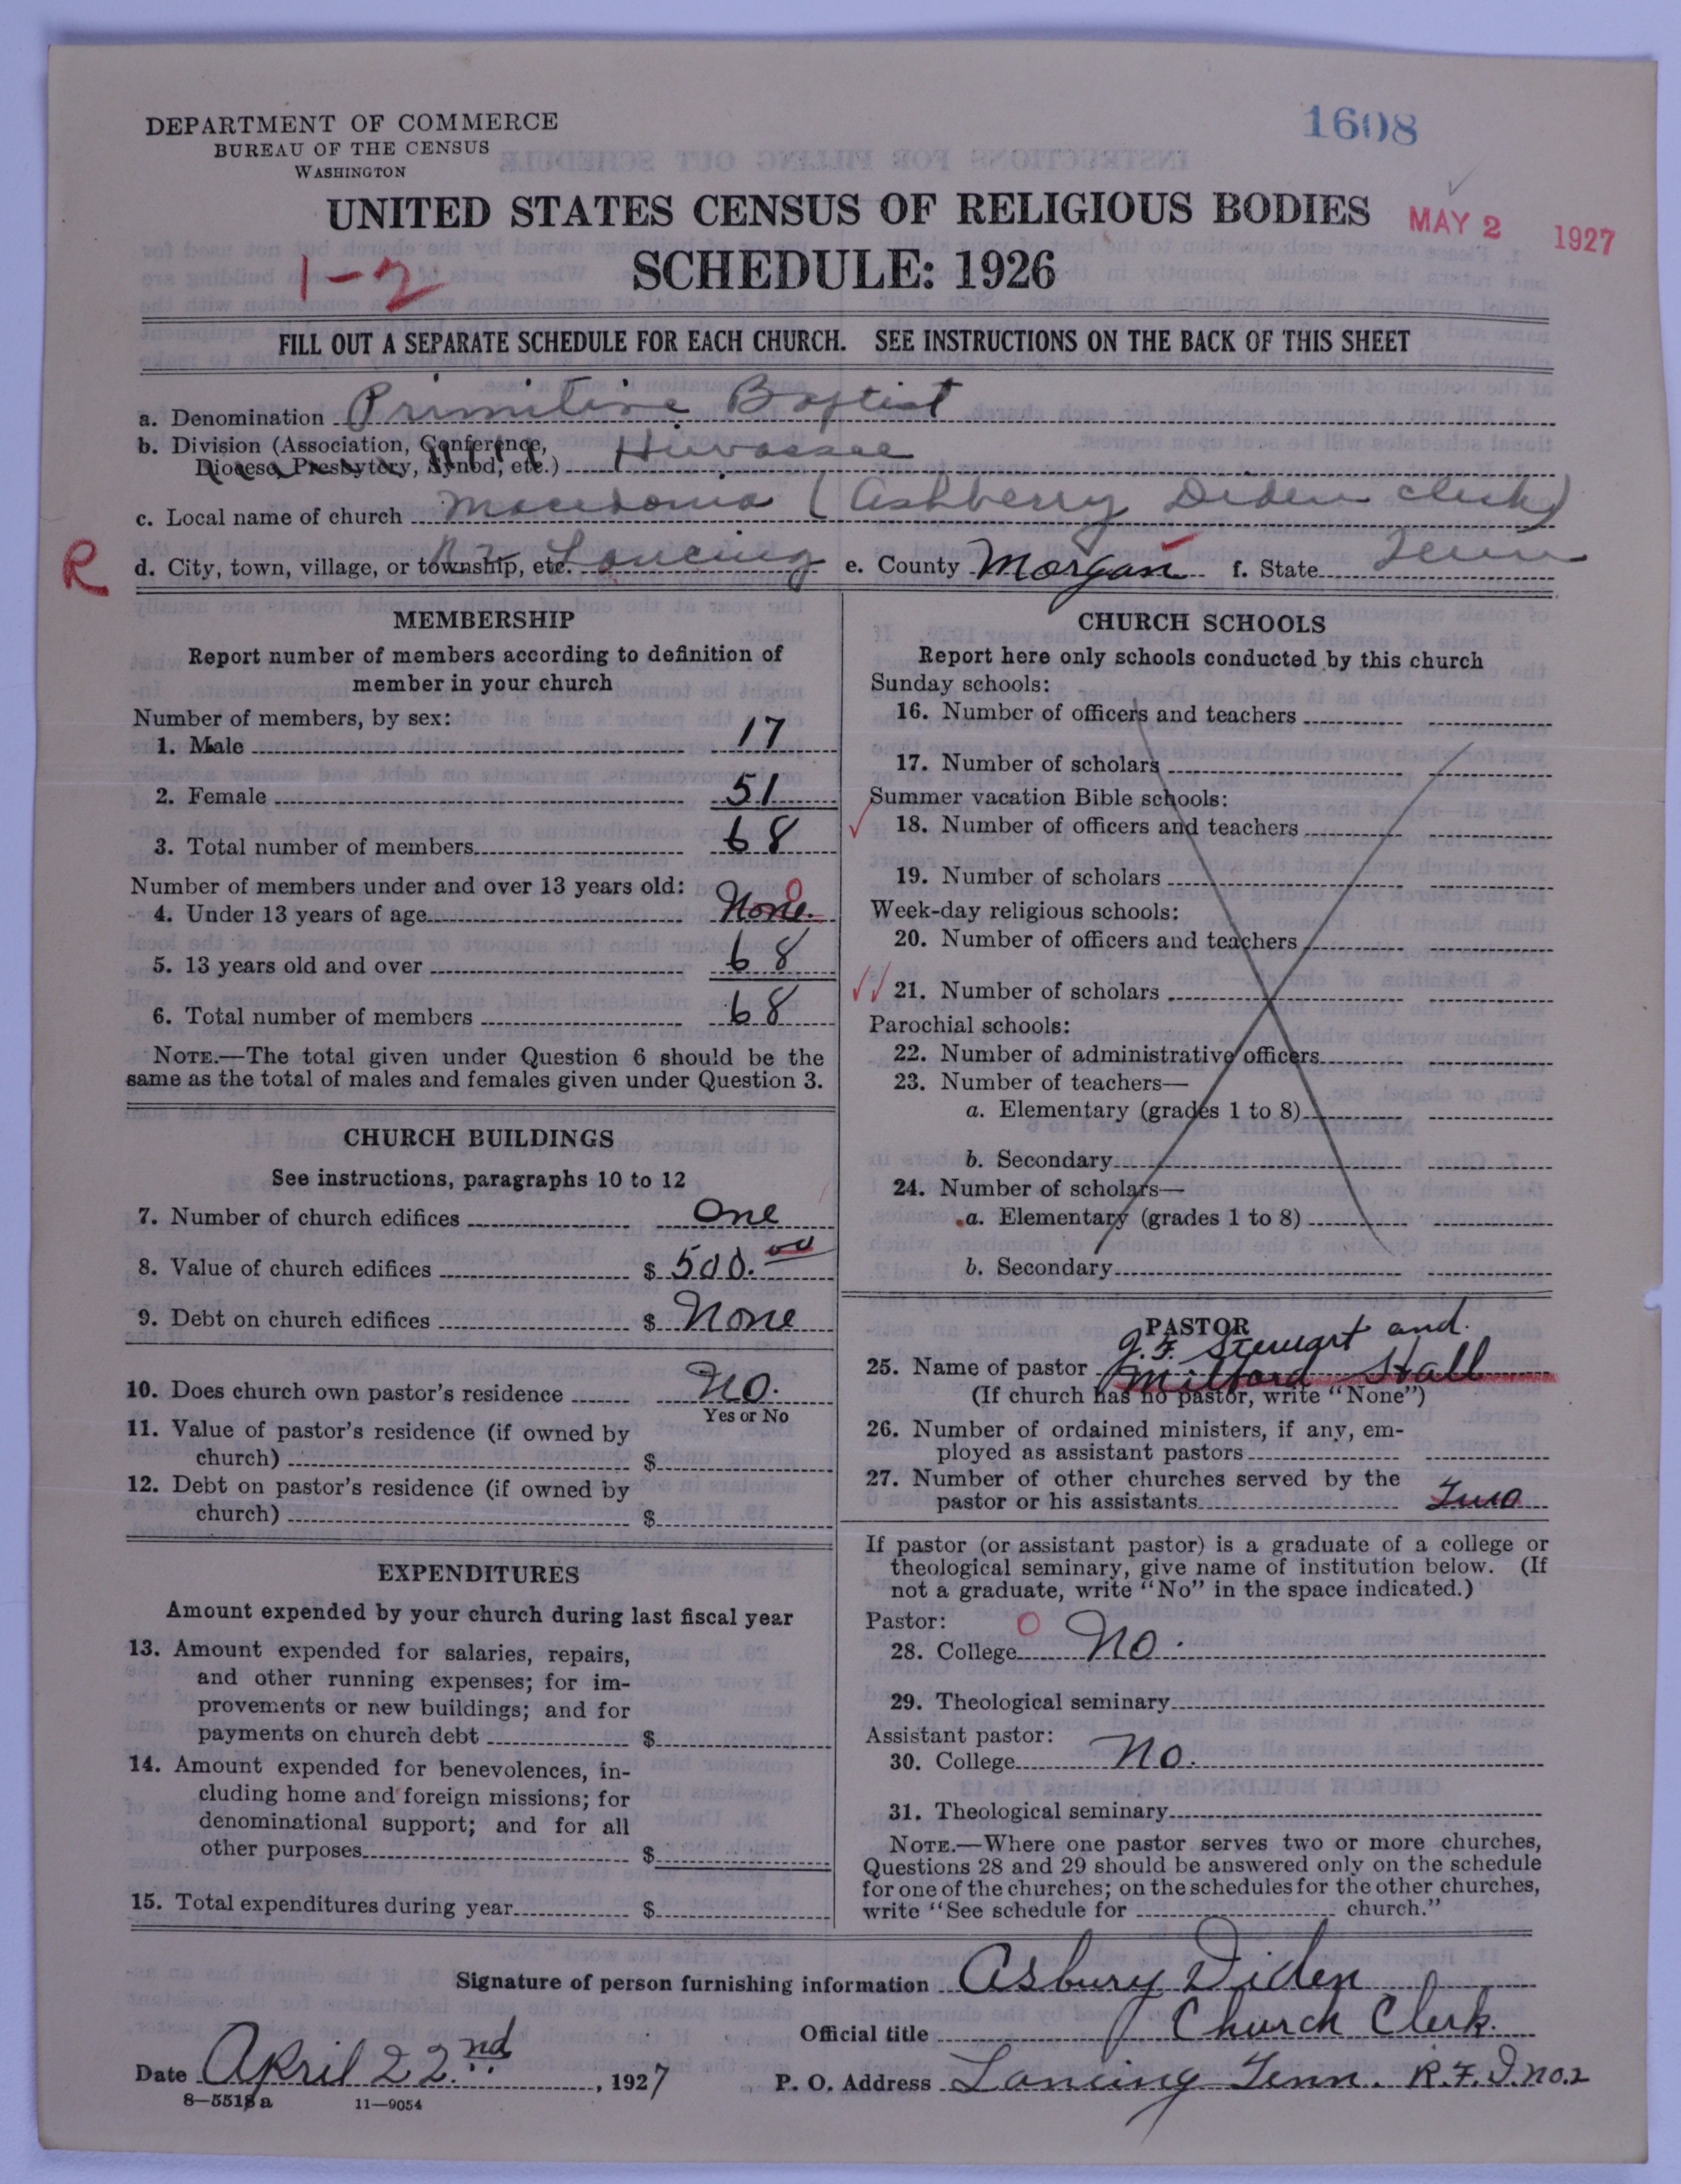 1608
DEPARTMENT OF COMMERCE
BUREAU OF THE CENSUS
WASHINGTON
UNITED STATES CENSUS OF RELIGIOUS BODIES
MAY 2 1927
SCHEDULE: 1926
1-2
FILL OUT A SEPARATE SCHEDULE FOR EACH CHURCH. SEE INSTRUCTIONS ON THE BACK OF THIS SHEET
a. Denomination Primitive Baptist
b. Division (Association, Conference,
Diocese, Presbytery, Synod, etc.) Hiwassee
c. Local name of church Macedonia (Ashberry Diden clerk)
R
d. City, town, village, or township, etc. R 2 Lancing e. County Morgan f. State Tenn
MEMBERSHIP
Report number of members according to definition of
member in your church
Number of members, by sex:
1. Male 17
2. Female 51
3. Total number of members 68
Number of members under and over 13 years old:
4. Under 13 years of age None. 0
5. 13 years old and over 68
6. Total number of members 68
NOTE.—The total given under Question 6 should be the
same as the total of males and females given under Question 3.
CHURCH BUILDINGS
See instructions, paragraphs 10 to 12
7. Number of church edifices One
8. Value of church edifices $ 500.00
9. Debt on church edifices $ None
10. Does church own pastor's residence No.
Yes or No
11. Value of pastor's residence (if owned by
church) $
12. Debt on pastor's residence (if owned by
church) $
EXPENDITURES
Amount expended by your church during last fiscal year
13. Amount expended for salaries, repairs,
and other running expenses; for im-
provements or new buildings; and for
payments on church debt $
14. Amount expended for benevolences, in-
cluding home and foreign missions; for
denominational support; and for all
other purposes $
15. Total expenditures during year $
CHURCH SCHOOLS
Report here only schools conducted by this church
Sunday schools:
16. Number of officers and teachers
17. Number of scholars
Summer vacation Bible schools:
18. Number of officers and teachers
19. Number of scholars
Week-day religious schools:
20. Number of officers and teachers
21. Number of scholars
Parochial schools:
22. Number of administrative officers
23. Number of teachers—
a. Elementary (grades 1 to 8)
b. Secondary
24. Number of scholars—
a. Elementary (grades 1 to 8)
b. Secondary
PASTOR
J. F. Stewart and.
25. Name of pastor Milford Hall
(If church has no pastor, write "None")
26. Number of ordained ministers, if any, em-
ployed as assistant pastors
27. Number of other churches served by the
pastor or his assistants Two
If pastor (or assistant pastor) is a graduate of a college or
theological seminary, give name of institution below. (If
not a graduate, write "No" in the space indicated.)
Pastor:
28. College 0 No.
29. Theological seminary
Assistant pastor:
30. College No.
31. Theological seminary
NOTE.—Where one pastor serves two or more churches,
Questions 28 and 29 should be answered only on the schedule
for one of the churches; on the schedules for the other churches,
write "See schedule for church."
Signature of person furnishing information Asbury Diden
Official title Church Clerk.
Date April 22.nd, 1927 P. O. Address Lancing Tenn. R.F.D. No. 2
8—5518 a 11—9054